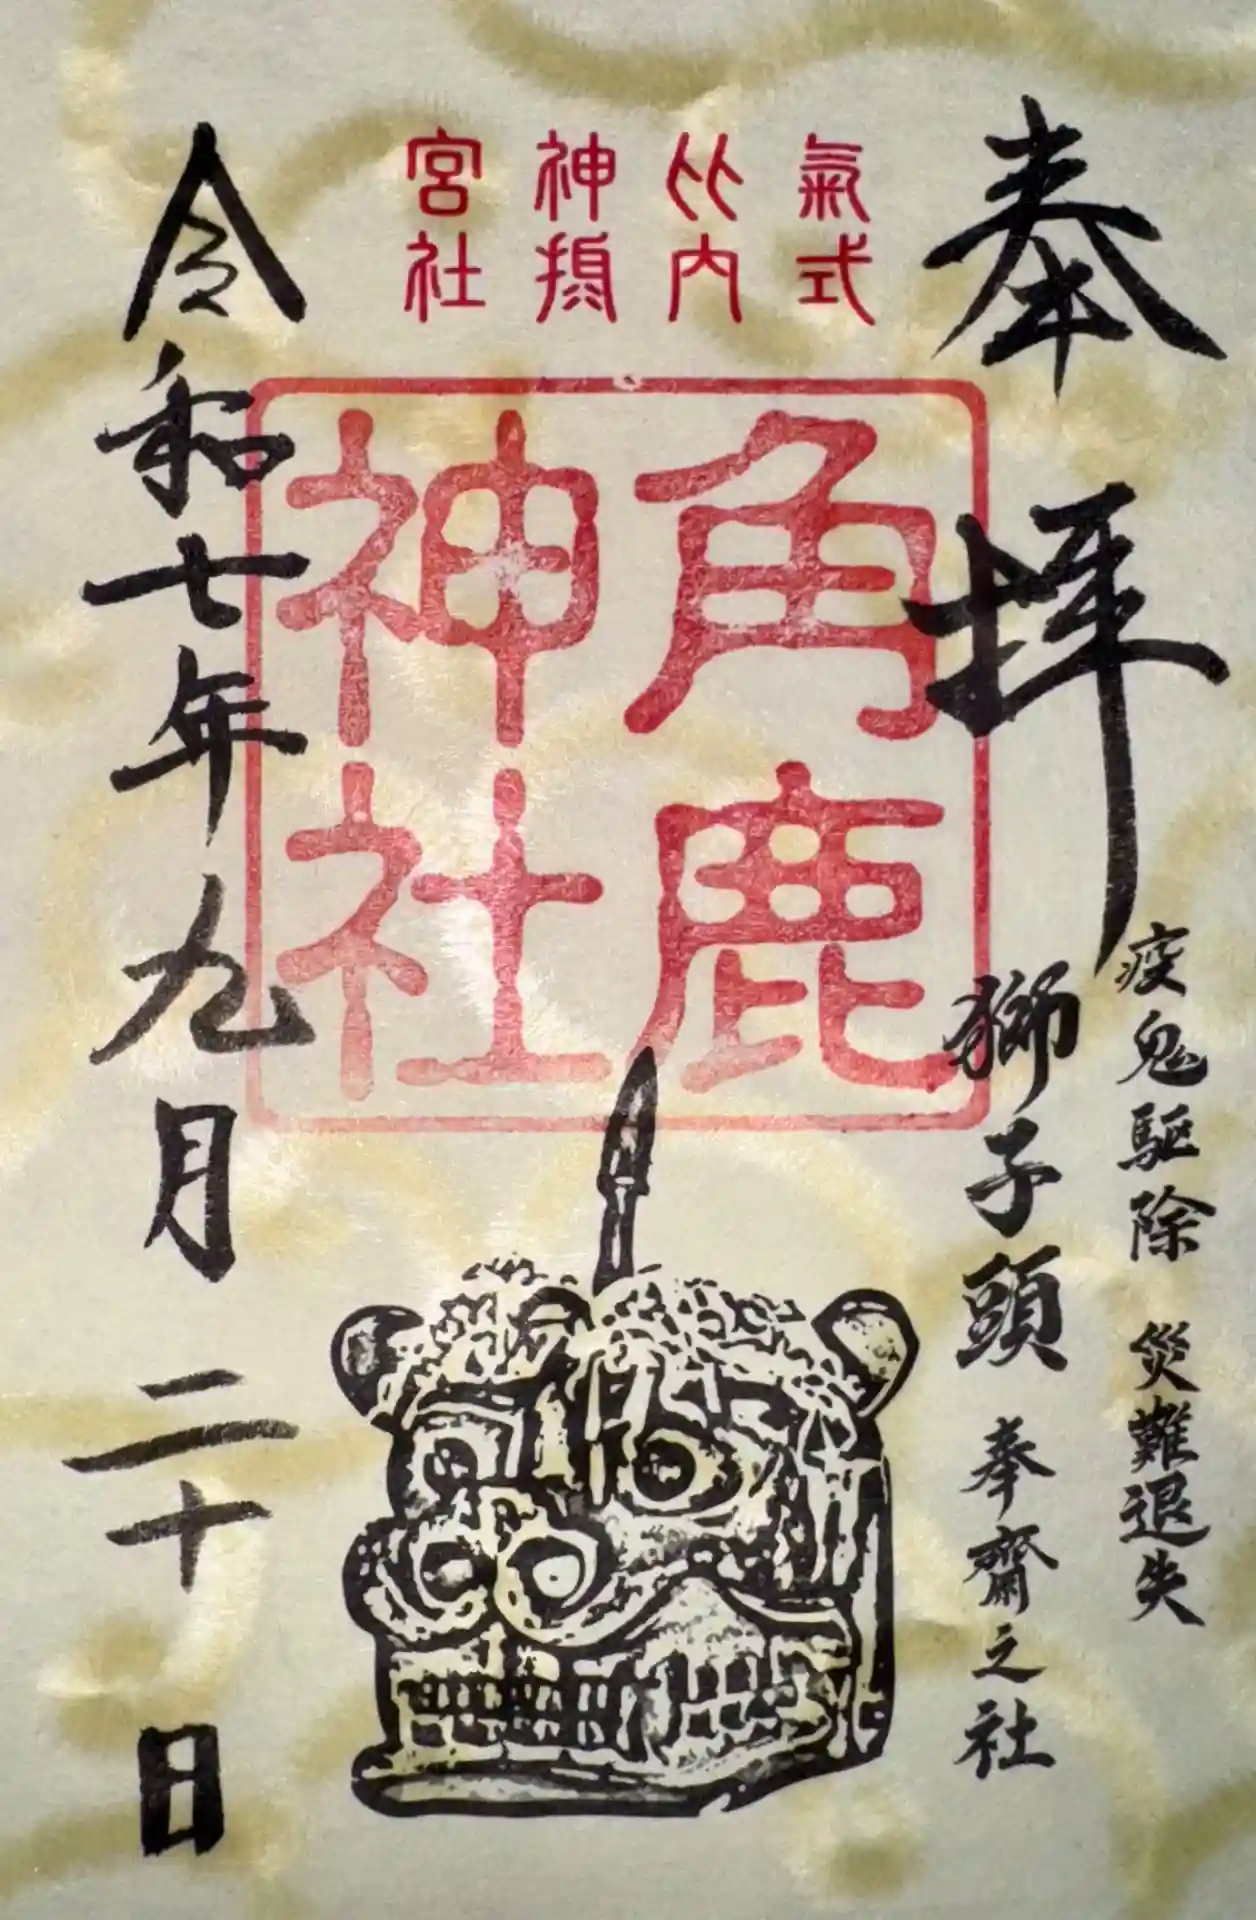 奉拝
疫鬼駆除 災難退失
獅子頭 奉齋之社
氣比神宮
式内摂社
角鹿
神社
令和七年九月二十日